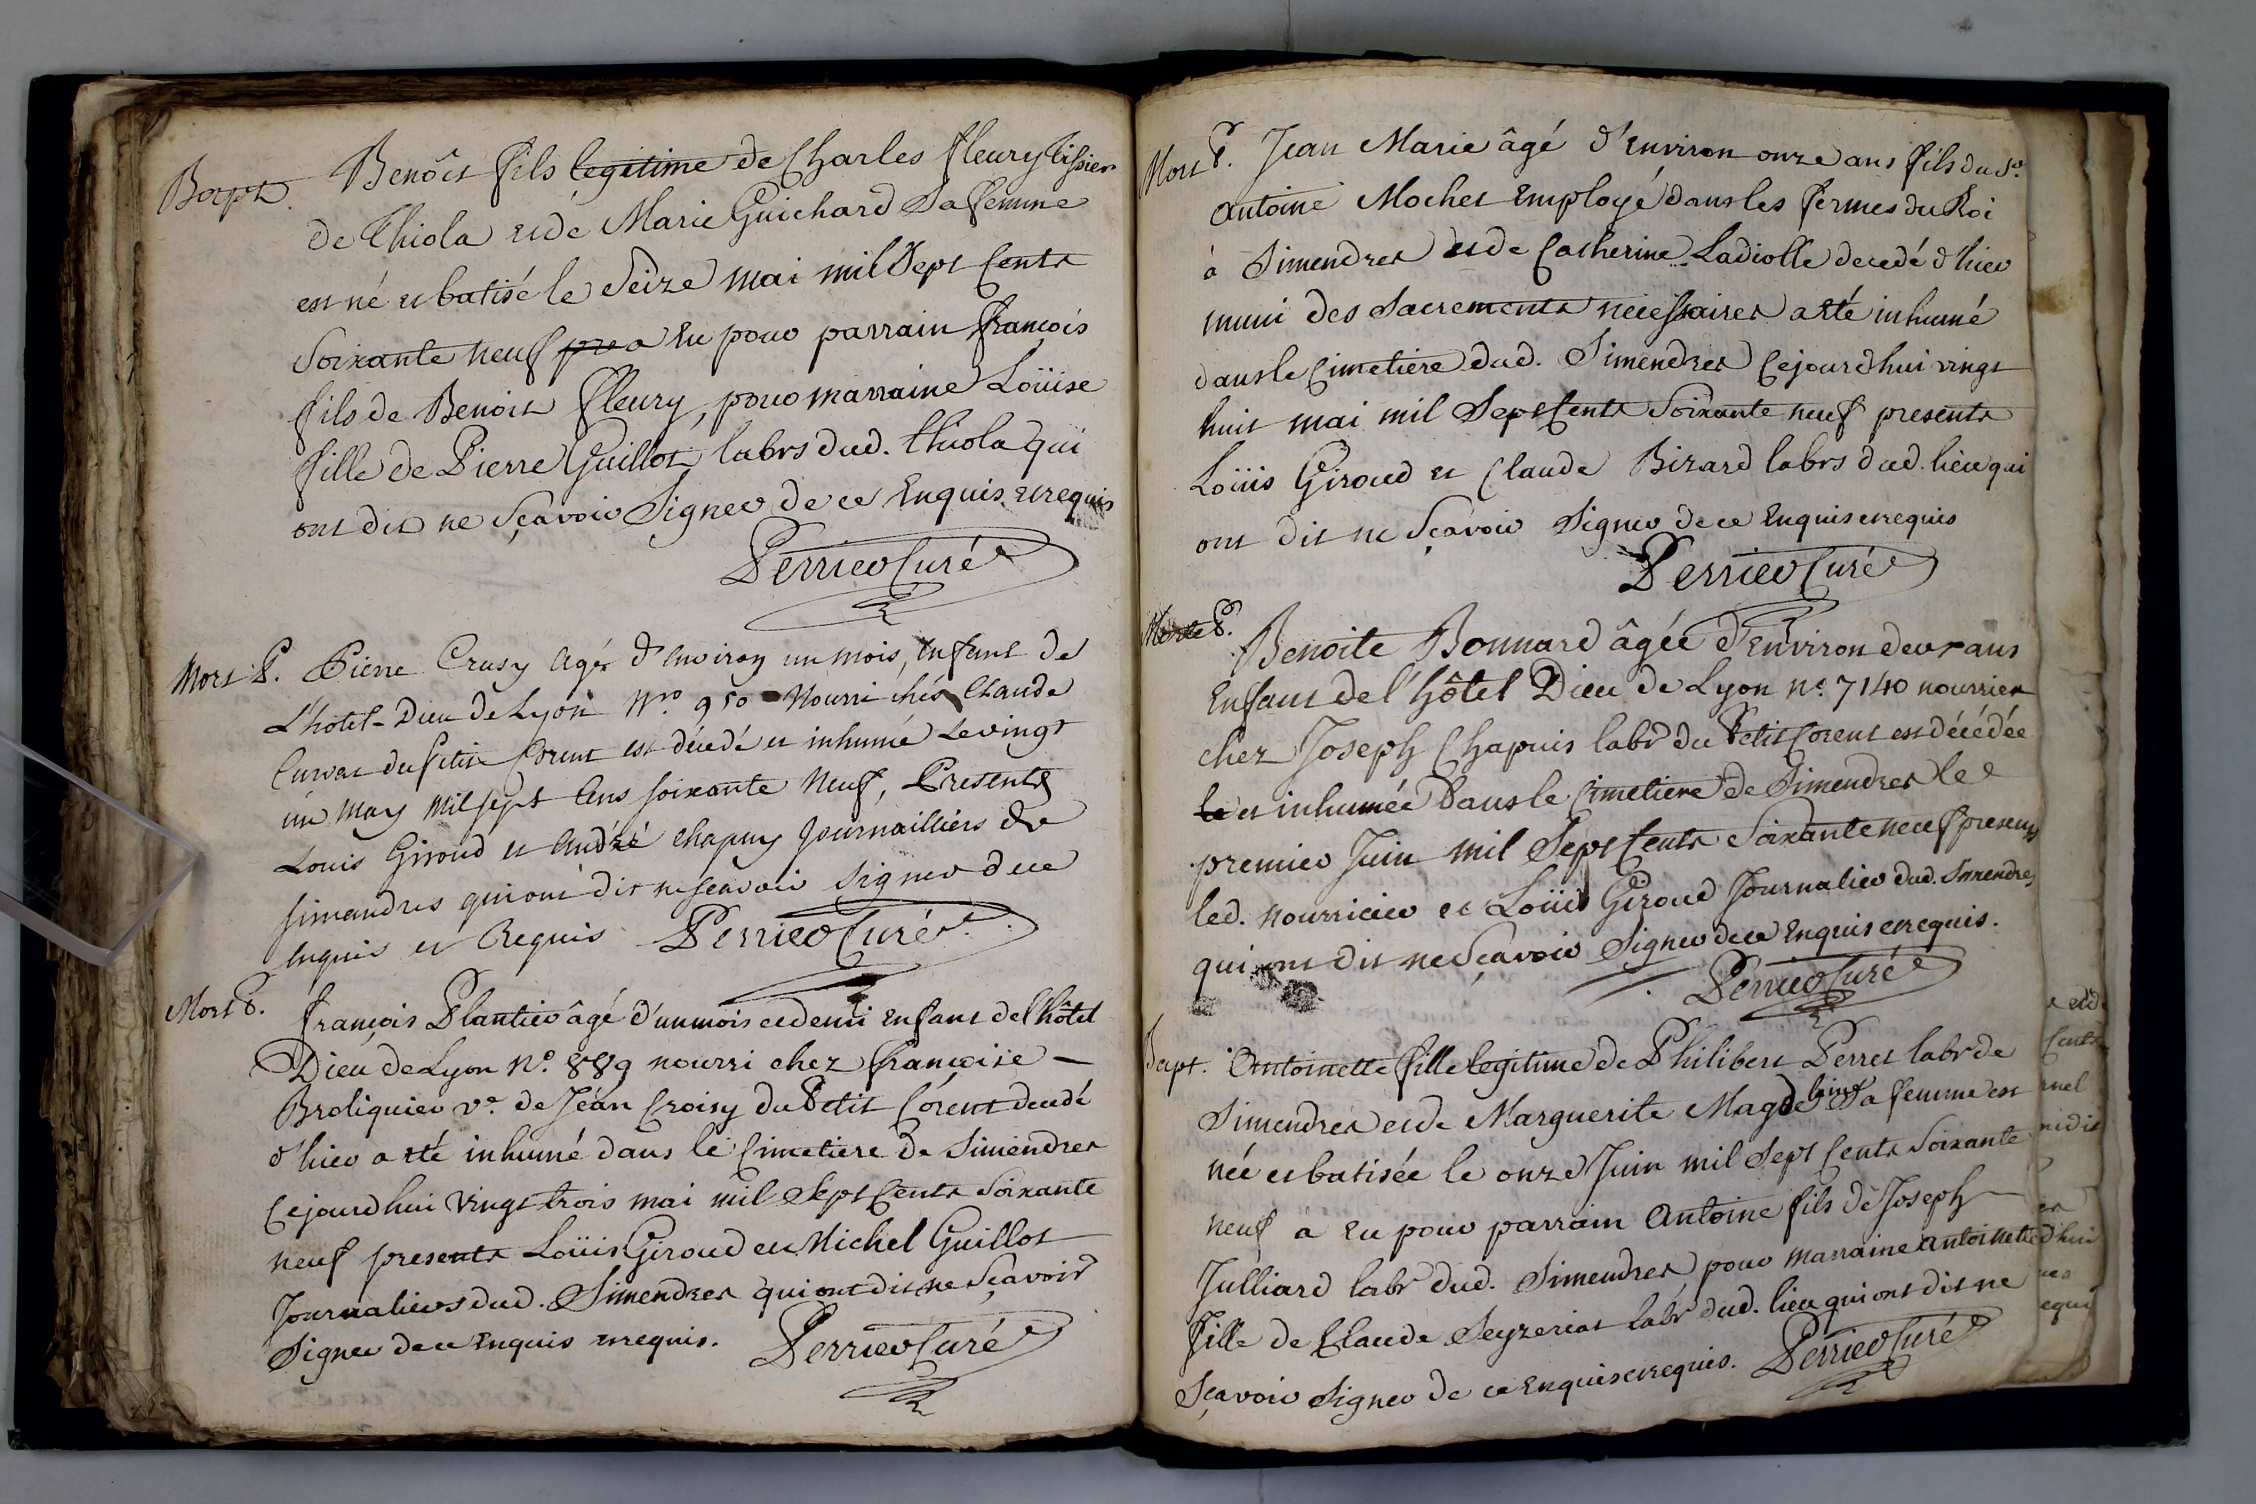 Bapt.
Benôit fils legitime de Charles fleury tissier
de Thiola et de Marie Guichard Sa femme
est né et batisé le Seize mai mil Sept Cents
Soixante neuf a Eu pour parrain françois
fils de Benoit fleury, pour marraine Loüise
fille de Pierre Guillot labrs dud. thiola qui
ont dit ne Sçavoir Signer de ce Enquis et requis
Perrier Curé
Mort P. Pierre Crusy Agér d'Environ un mois, Enfant de
L'hotel-Dieu de Lyon Nro 950 Nourri chés Claude
Curvat du petit Corent est décédé et inhumé Le vingt
un May Mil sept Cens soixante Neuf, Presents
Louis Giroud et André Chapuy Journailliers de
simandres qui ont dit ne scavoir signer de ce
Enquis et Requis Perrier Curé
Mort P.
françois Plantier âgé d'un mois et demi Enfant de l'hôtel
Dieu de Lyon No. 889 nourri chez françoise
Broliquier ve. de Jéan Croisy du Petit Corent decedé
d'hier a été inhumé dans le Cimetiere de Simendres
Cejourd'hui vingt trois mai mil Sept Cents Soixante
neuf presents Loüis Giroud et Michel Guillot
Journaliers dud. Simendres qui ont dit ne Sçavoir
Signer de ce Enquis et requis. Perrier Curé
Mort P. Jean Marie âgé d'Environ onze ans fils du Sr.
Antoine Mochet Employé dans les fermes du Roi
à Simendres et de Catherine Ladiolle decedé d'hier
muni des Sacrements necessaires a été inhumé
dans le Cimetiere dud. Simendres Cejourd'hui vingt
huit mai mil Sept Cents Soixante neuf presents
Loüis Giroud et Claude Bizard labrs dud. lieu qui
ont dit ne Sçavoir Signer de ce Enquis et requis
Perrier Curé
Morte P.
Benoite Bonnard âgée d'Environ deux ans
Enfant de l'hôtel Dieu de Lyon no. 7140 nourrie
chez Joseph Chapuis labr du Petit Corent est décédée
et inhumée dans le Cimetiere de Simendres le
premier Juin mil Sept Cents Soixante neuf presents
led. nourricier et Loüis Giroud Journalier dud. Simendres
qui ont dit ne Sçavoir Signer de ce Enquis et requis.
Perrier Curé
Bapt. Antoinette fille legitime de Philibert Perret labr de
Simendres et de Marguerite Magdelaine Sa femme est
née et batisée le onze Juin mil Sept Cents Soixante
neuf a Eu pour parrain Antoine fils de Joseph
Julliard labr dud. Simendres pour marraine Antoinette
fille de Claude Seyzeriat labr dud. lieu qui ont dit ne
Sçavoir Signer de ce Enquis et requis. Perrier Curé